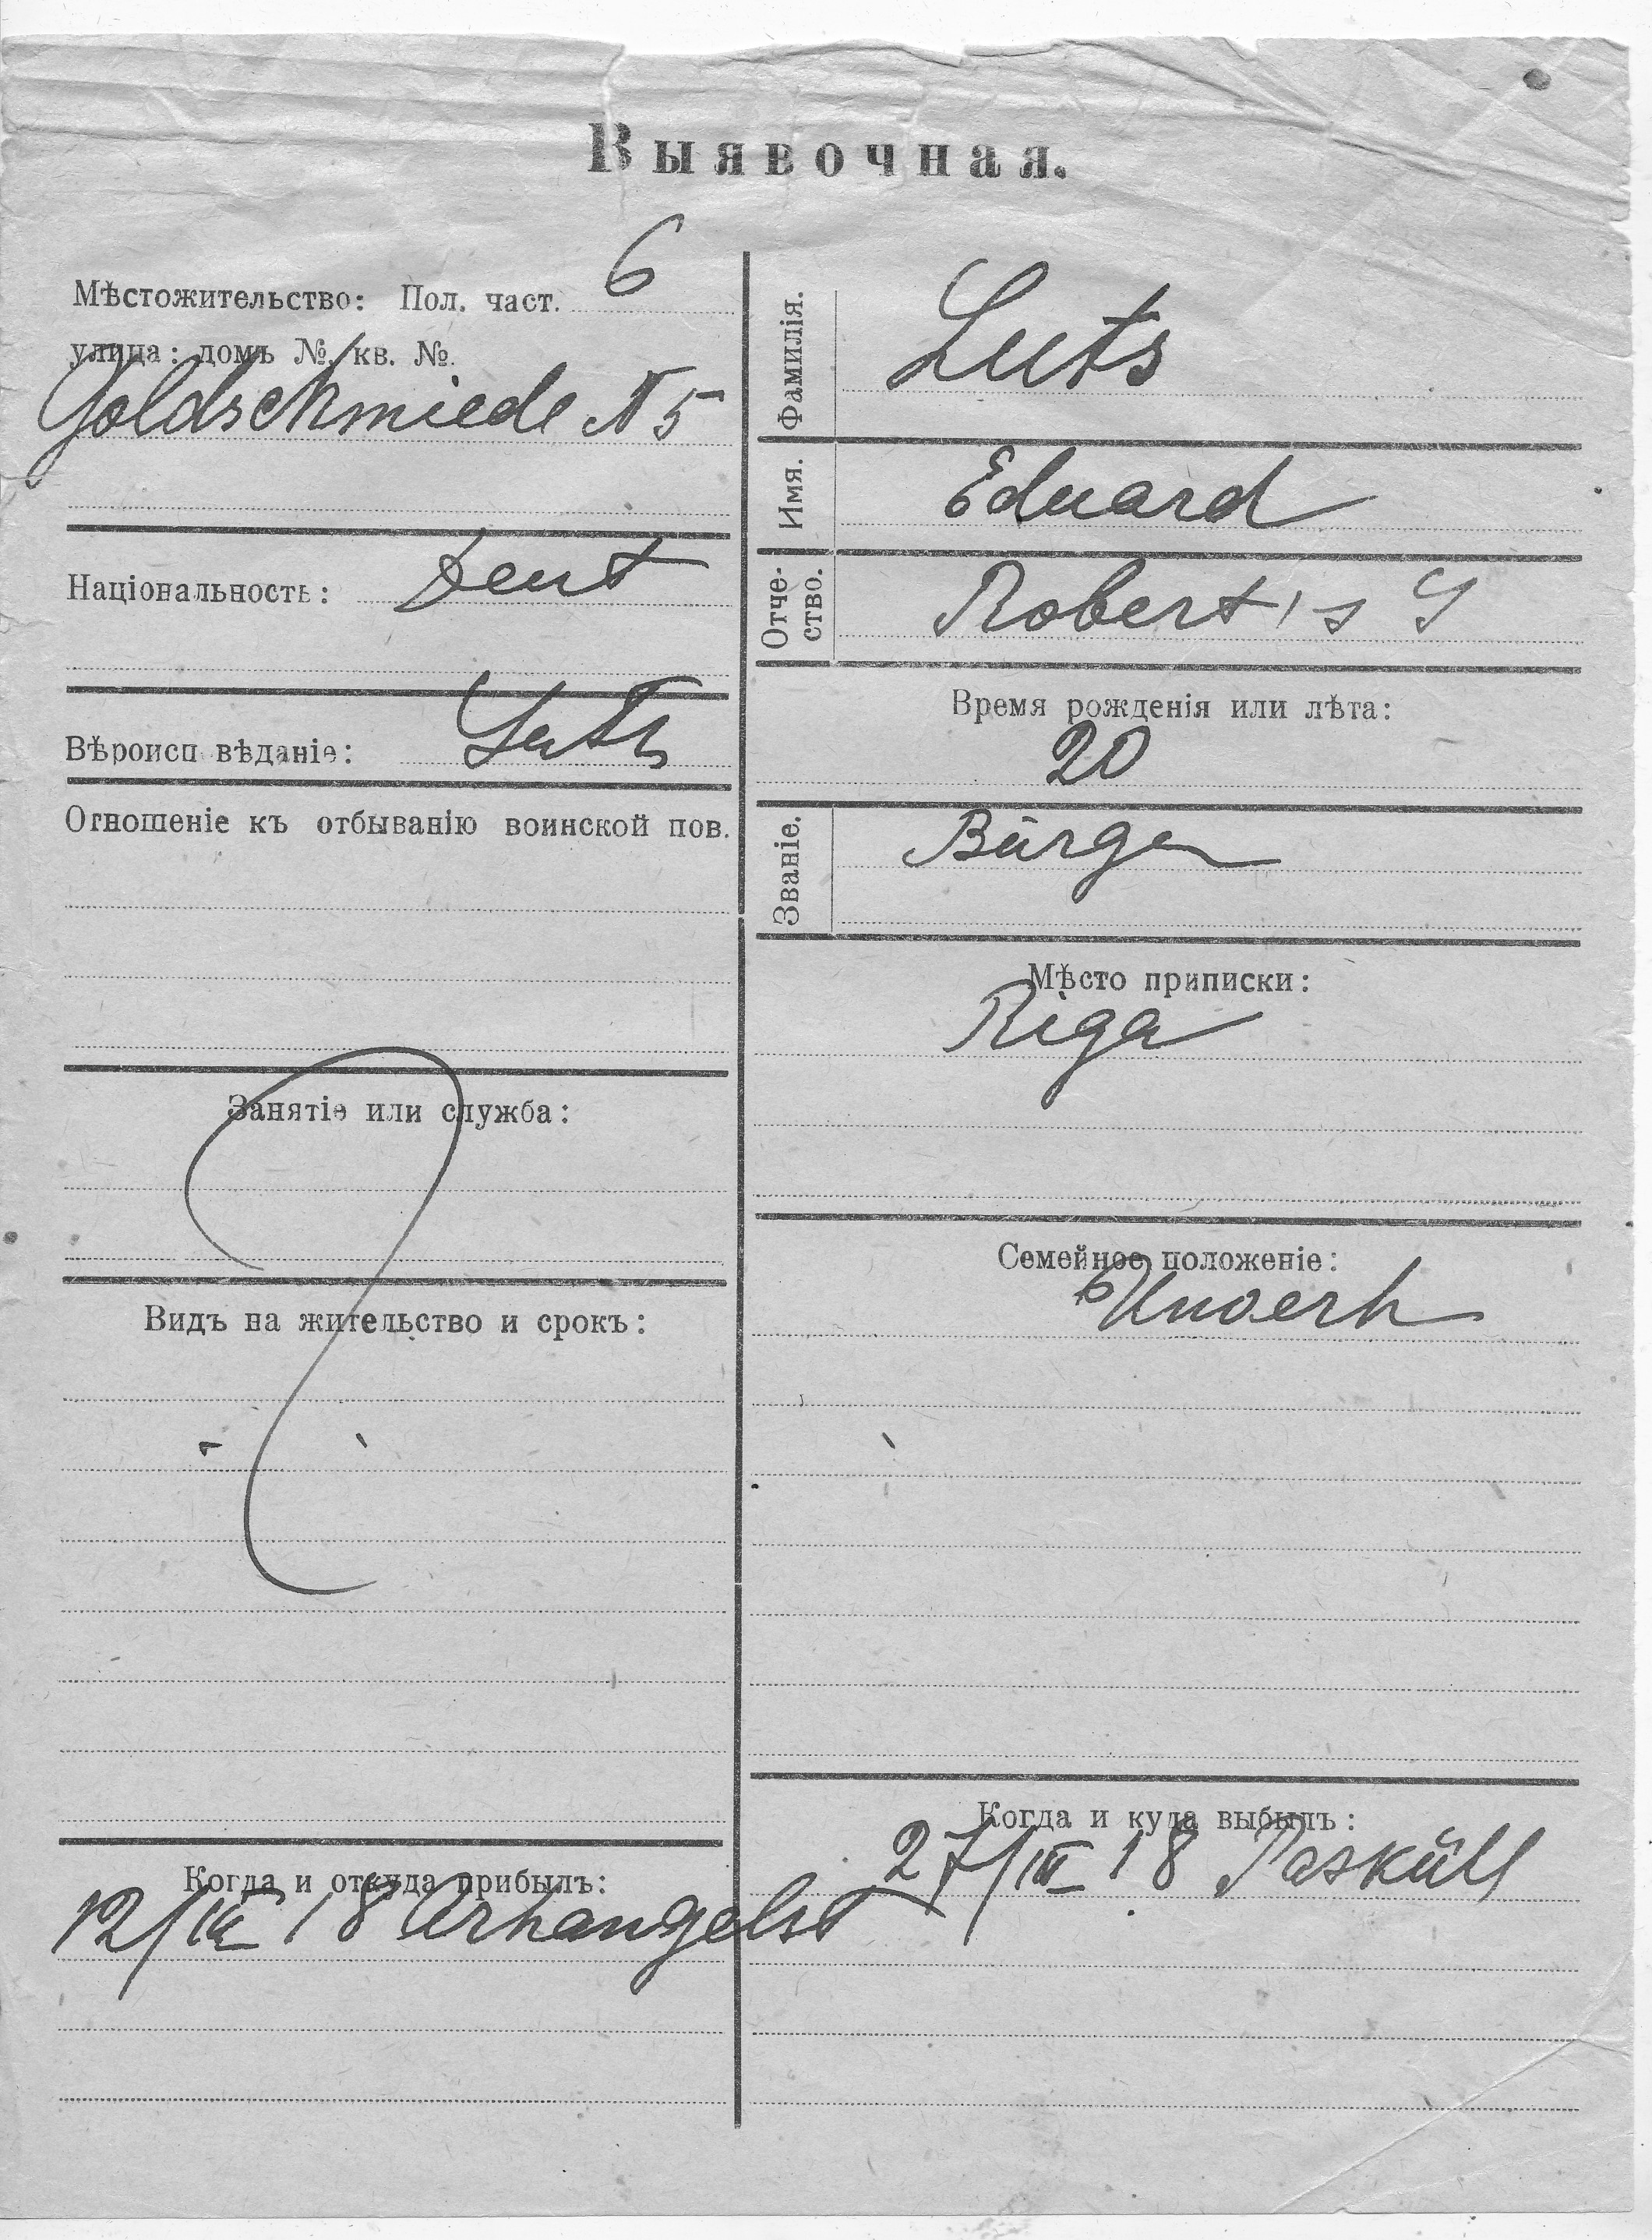 Выявочная.
Мѣстожительство: Пол. част. 6
улица: домъ №. кв. №.
Goldschmiede N 5
Національность: Deut
Вѣроисп вѣданіе: Luth
Отношеніе къ отбыванію воинской пов.
Занятіе или служба:
Видъ на жительство и срокъ:
Когда и откуда прибылъ:
12/III 18 Arhangelst
Фамилія. Luts
Имя. Eduard
Отче-
ство. Robert's S
Время рожденія или лѣта:
20
Званіе. Bürger
Мѣсто приписки:
Riga
Семейное положеніе:
Unverh
Когда и куда выбылъ:
27/III 18 Pasküll